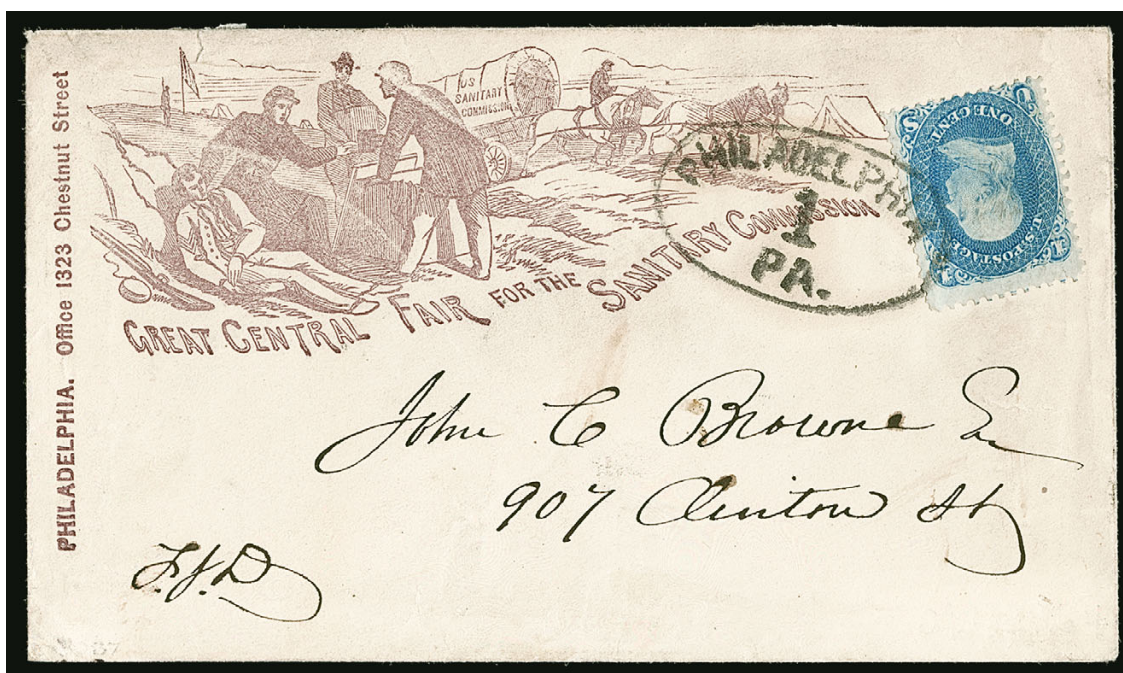 PHILADELPHIA. Office 1323 Chestnut Street
US
SANITARY
COMMISSION
GREAT CENTRAL FAIR FOR THE SANITARY COMMISSION
PHILADELPHIA
1
PA.
ONE CENT
U.S. POSTAGE
John C Browne Esq
907 Clinton St